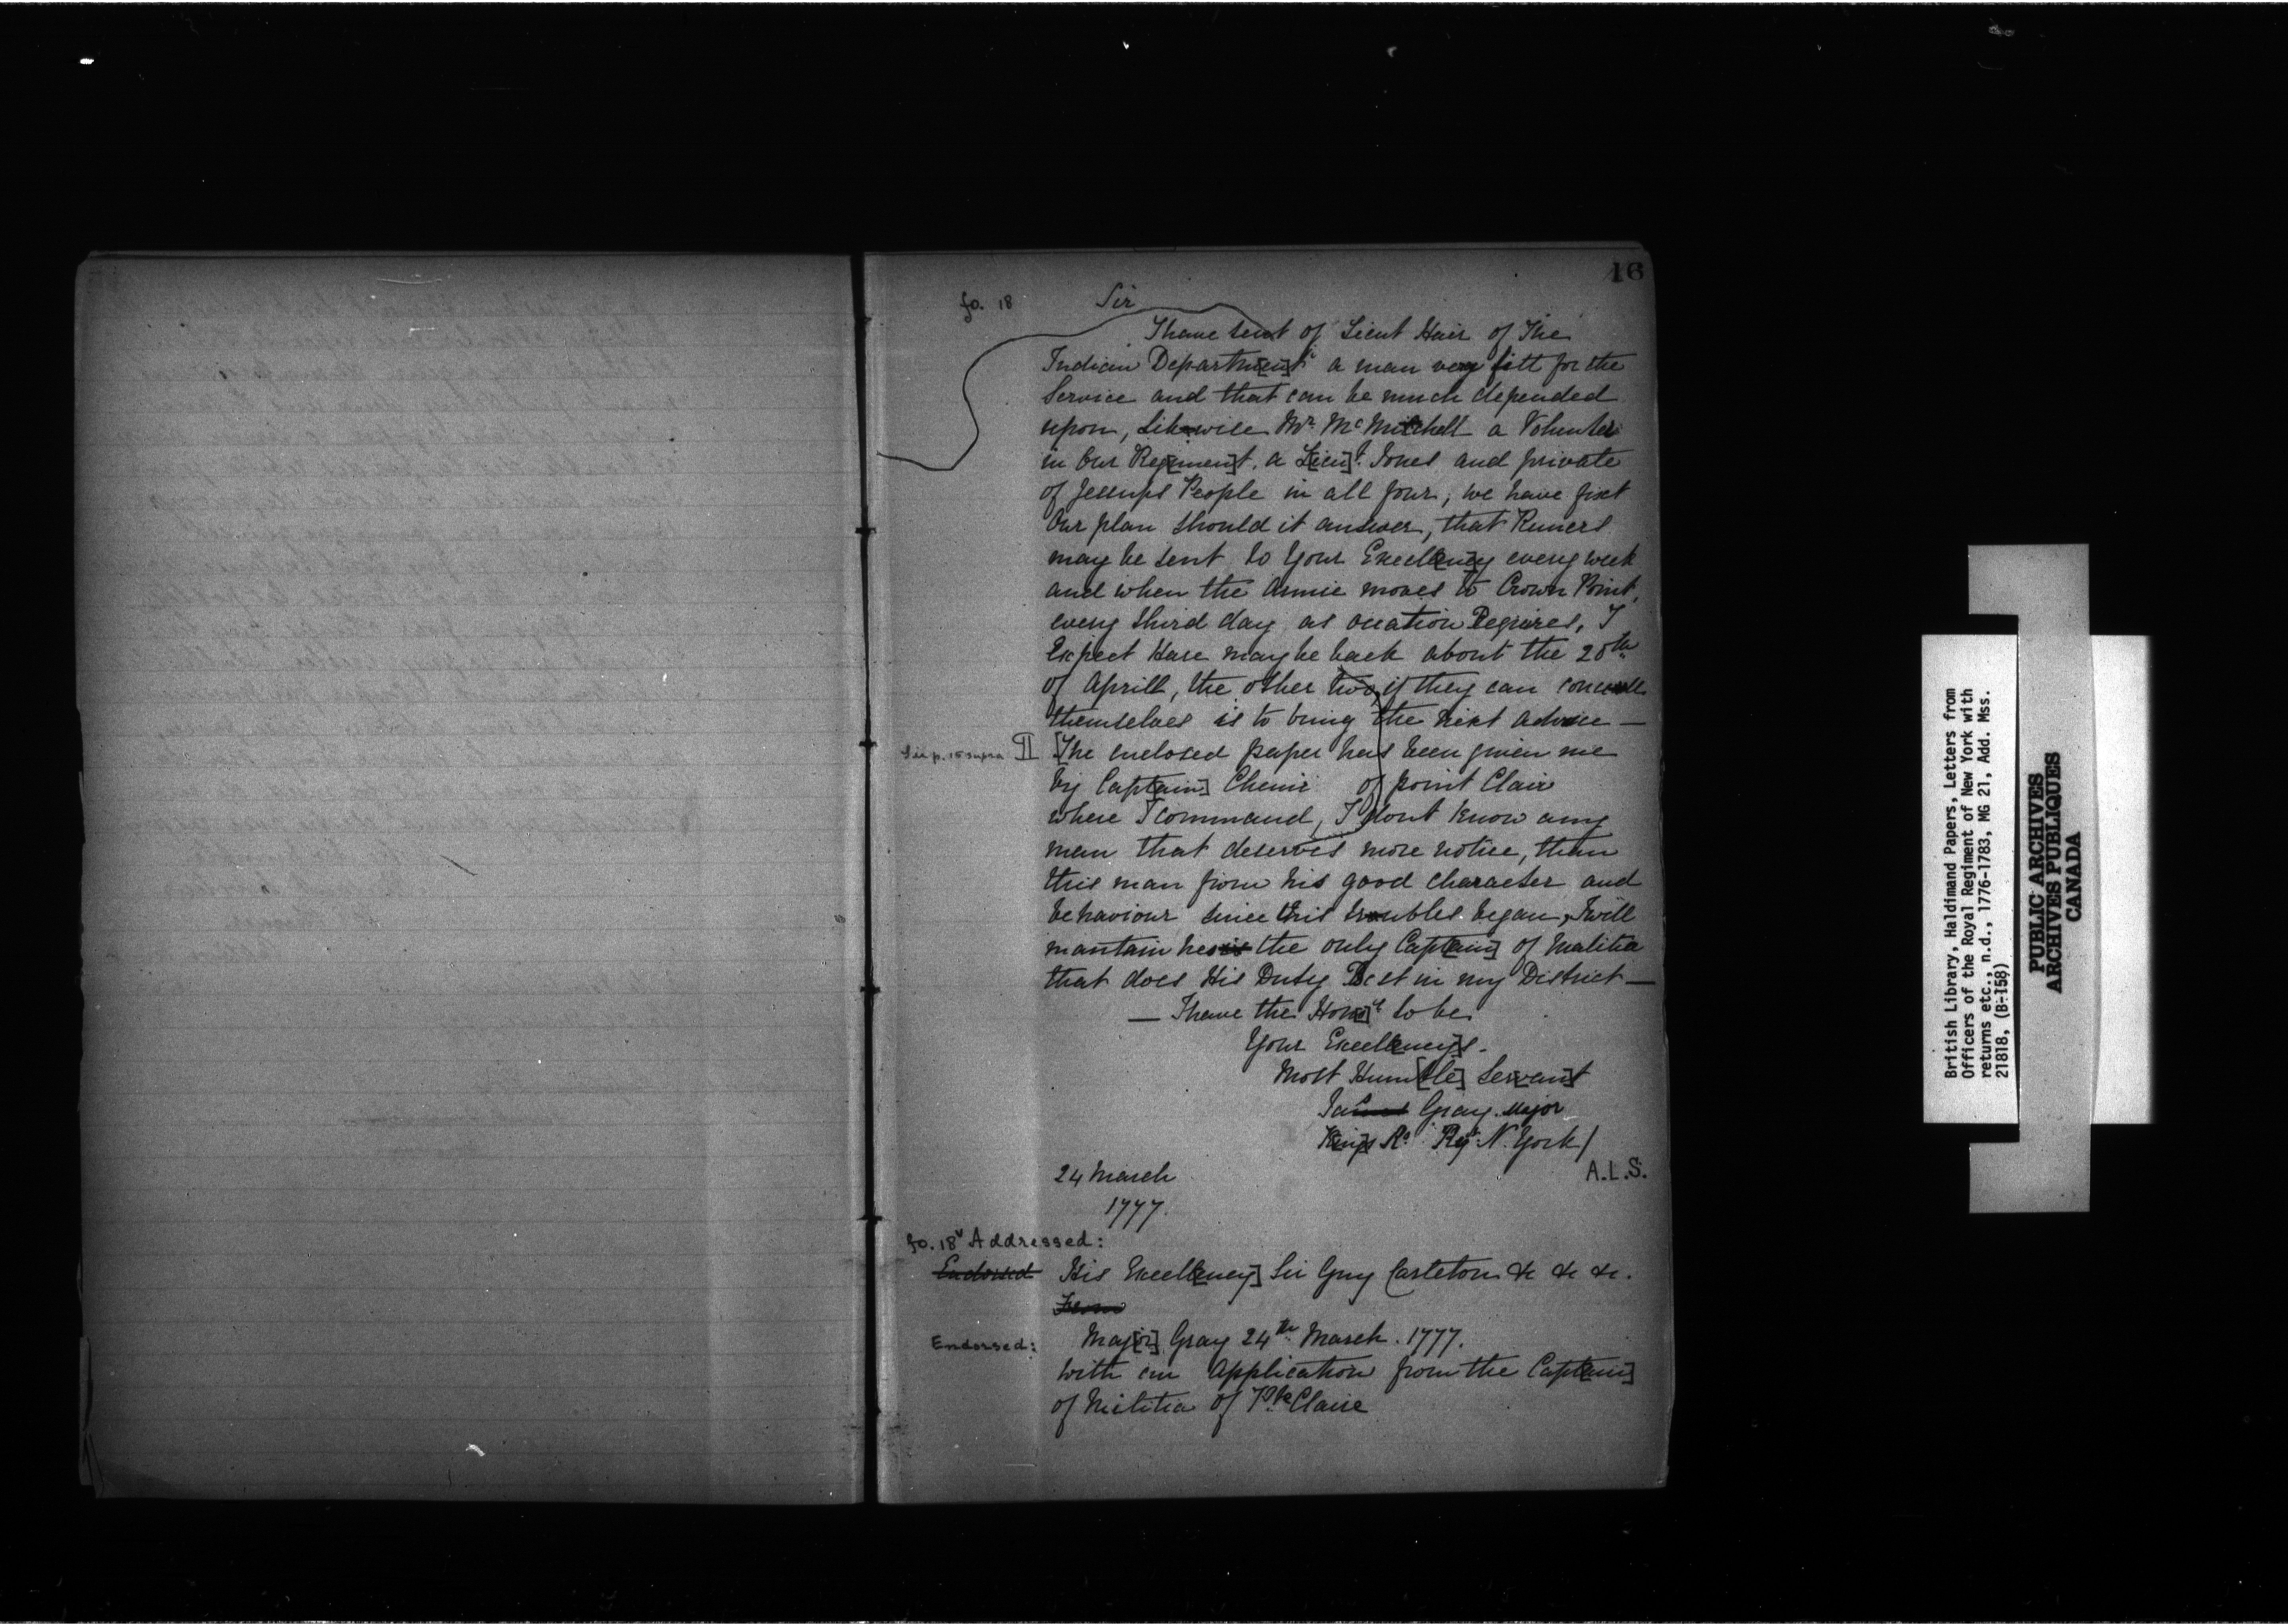 16
fo. 18 Sir
I have sent of Lieut Hair of The
Indian Departm[en]t a man very fitt for the
Service and that can be much depended
upon, Likewise Mr. McMitchell a Volunteer
in Our Reg[imen]t. a L[ieu]t. Jones and private
of Jessups People in all four, we have fixt
Our plan should it answer, that Runers
may be sent to Your Excell[enc]y every week
and when the Armie moves to Crown Point,
every third day as ocation Requires, I
Expect Hare may be back about the 20th
of Aprill, the other two, if they can conceall
themselves is to bring the next advice —
See p. 15 supra II [The enclosed paper has been given me
by Capt[ain] Chenie of point Clair
where I command, I dont know any
man that deserves more notice, than
this man from his good character and
behaviour since this troubles began, I will
mantain he is the only Capt[ain] of Malitia
that does His Duty Best in my District —
— I have the Hon[o]r to be
Your Excell[ency]s.
Most Hum[ble] Ser[van]t
Ja Gray Major
K[ing]s Rl Regt. N. York/
A.L.S.
24 March
1777.
fo. 18v Addressed:
Endorsed His Excell[ency] Sir Guy Carleton &c &c &c.
From
Endorsed: Maj[or] Gray 24th March. 1777.
with an Application from the Capt[ain]
of Militia of Pte Claire
British Library, Haldimand Papers, Letters from
Officers of the Royal Regiment of New York with
returns etc., n.d., 1776-1783, MG 21, Add. Mss.
21818, (B-158)
PUBLIC ARCHIVES
ARCHIVES PUBLIQUES
CANADA